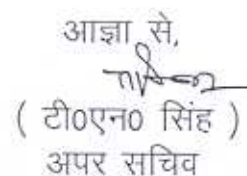 आज्ञा से,
( टी0एन0 सिंह )
अपर सचिव